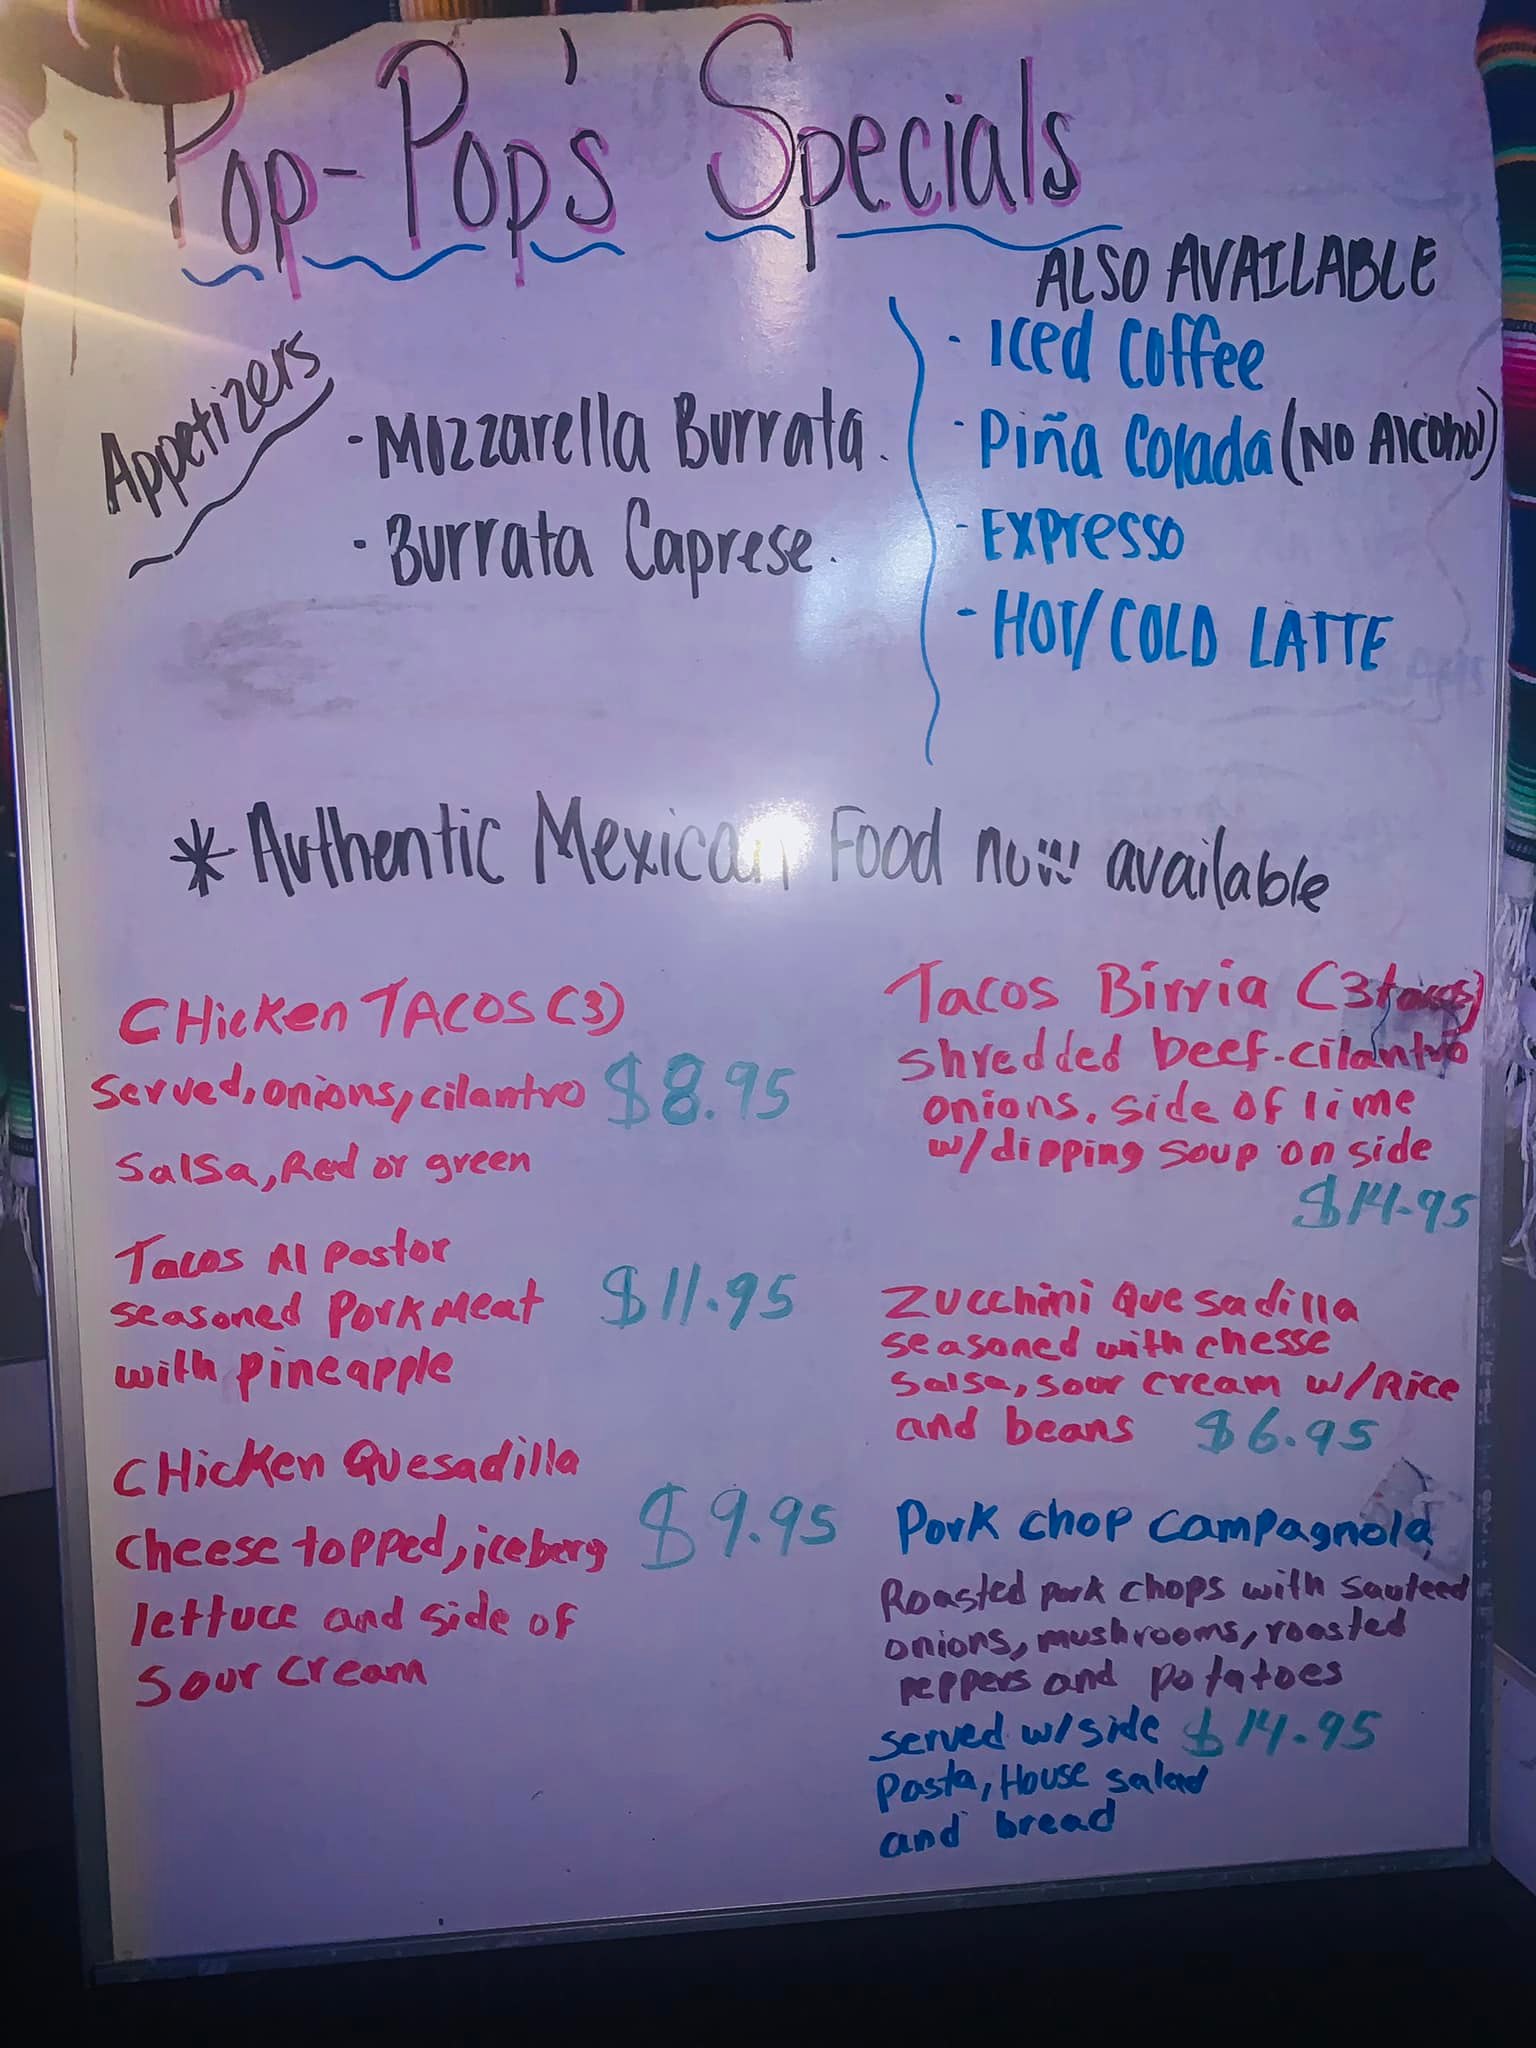 Pop-Pop's Specials
Appetizers
· Mozzarella Burrata.
· Burrata Caprese.
ALSO AVAILABLE
· Iced Coffee
· Piña Colada (No Alcohol)
- Expresso
- HOT/COLD LATTE
* Authentic Mexican Food now available
CHicken TACOS (3)
served, onions, cilantro $8.95
salsa, Red or green
Tacos Al Pastor
seasoned Pork Meat $11.95
with pineapple
CHicken Quesadilla
cheese topped, iceberg $9.95
lettuce and side of
sour cream
Tacos Birria (3 tacos)
shredded beef-cilantro
onions. side of lime
w/dipping soup on side
$14.95
Zucchini Quesadilla
seasoned with chesse
salsa, sour cream w/Rice
and beans $6.95
Pork chop campagnola
Roasted pork chops with sauteed
onions, mushrooms, roasted
peppers and potatoes
served w/side $14.95
Pasta, House salad
and bread